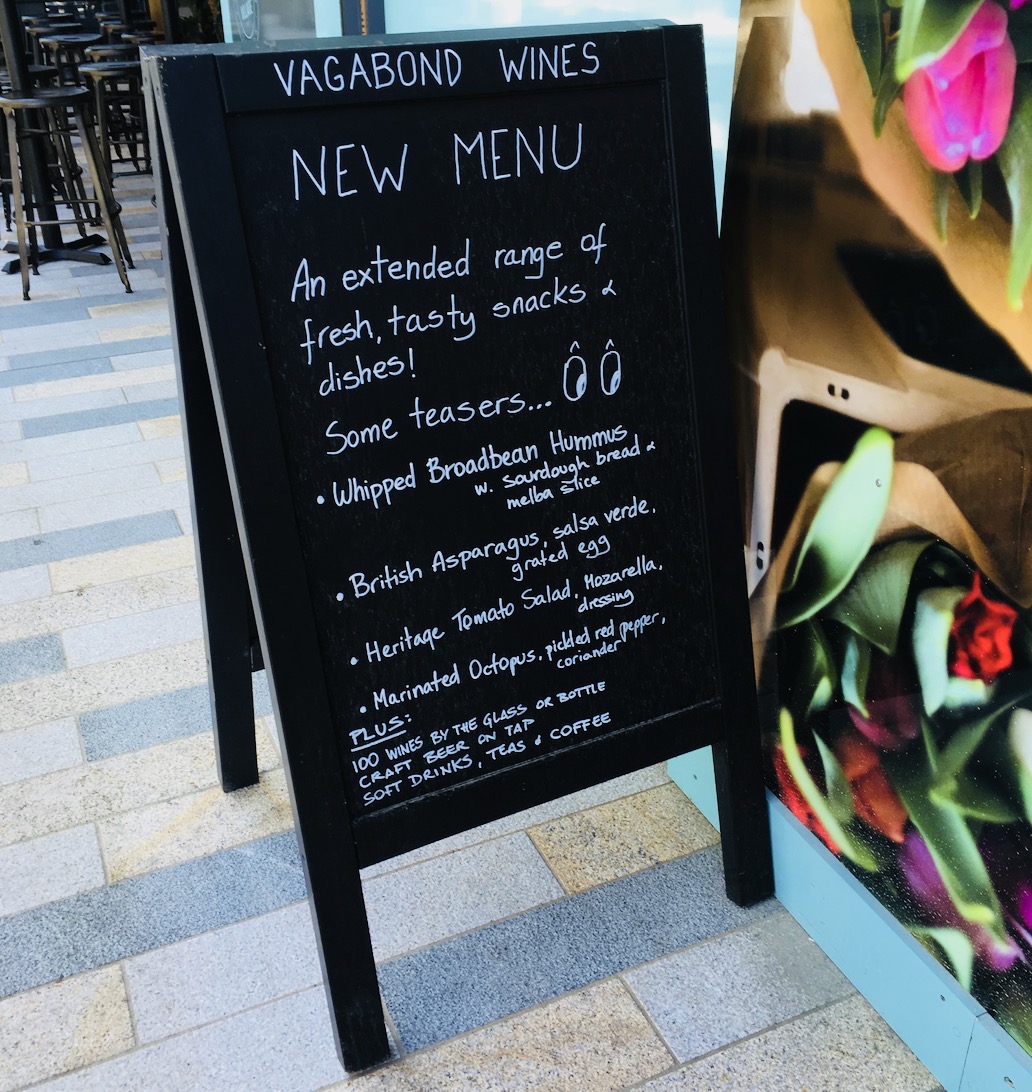 VAGABOND WINES
NEW MENU
An extended range of
fresh, tasty snacks &
dishes!
Some teasers...
• Whipped Broadbean Hummus
w. Sourdough bread &
melba slice
• British Asparagus, salsa verde,
grated egg
• Heritage Tomato Salad, Mozarella,
dressing
• Marinated Octopus, pickled red pepper,
coriander
PLUS:
100 WINES BY THE GLASS OR BOTTLE
CRAFT BEER ON TAP
SOFT DRINKS, TEAS & COFFEE